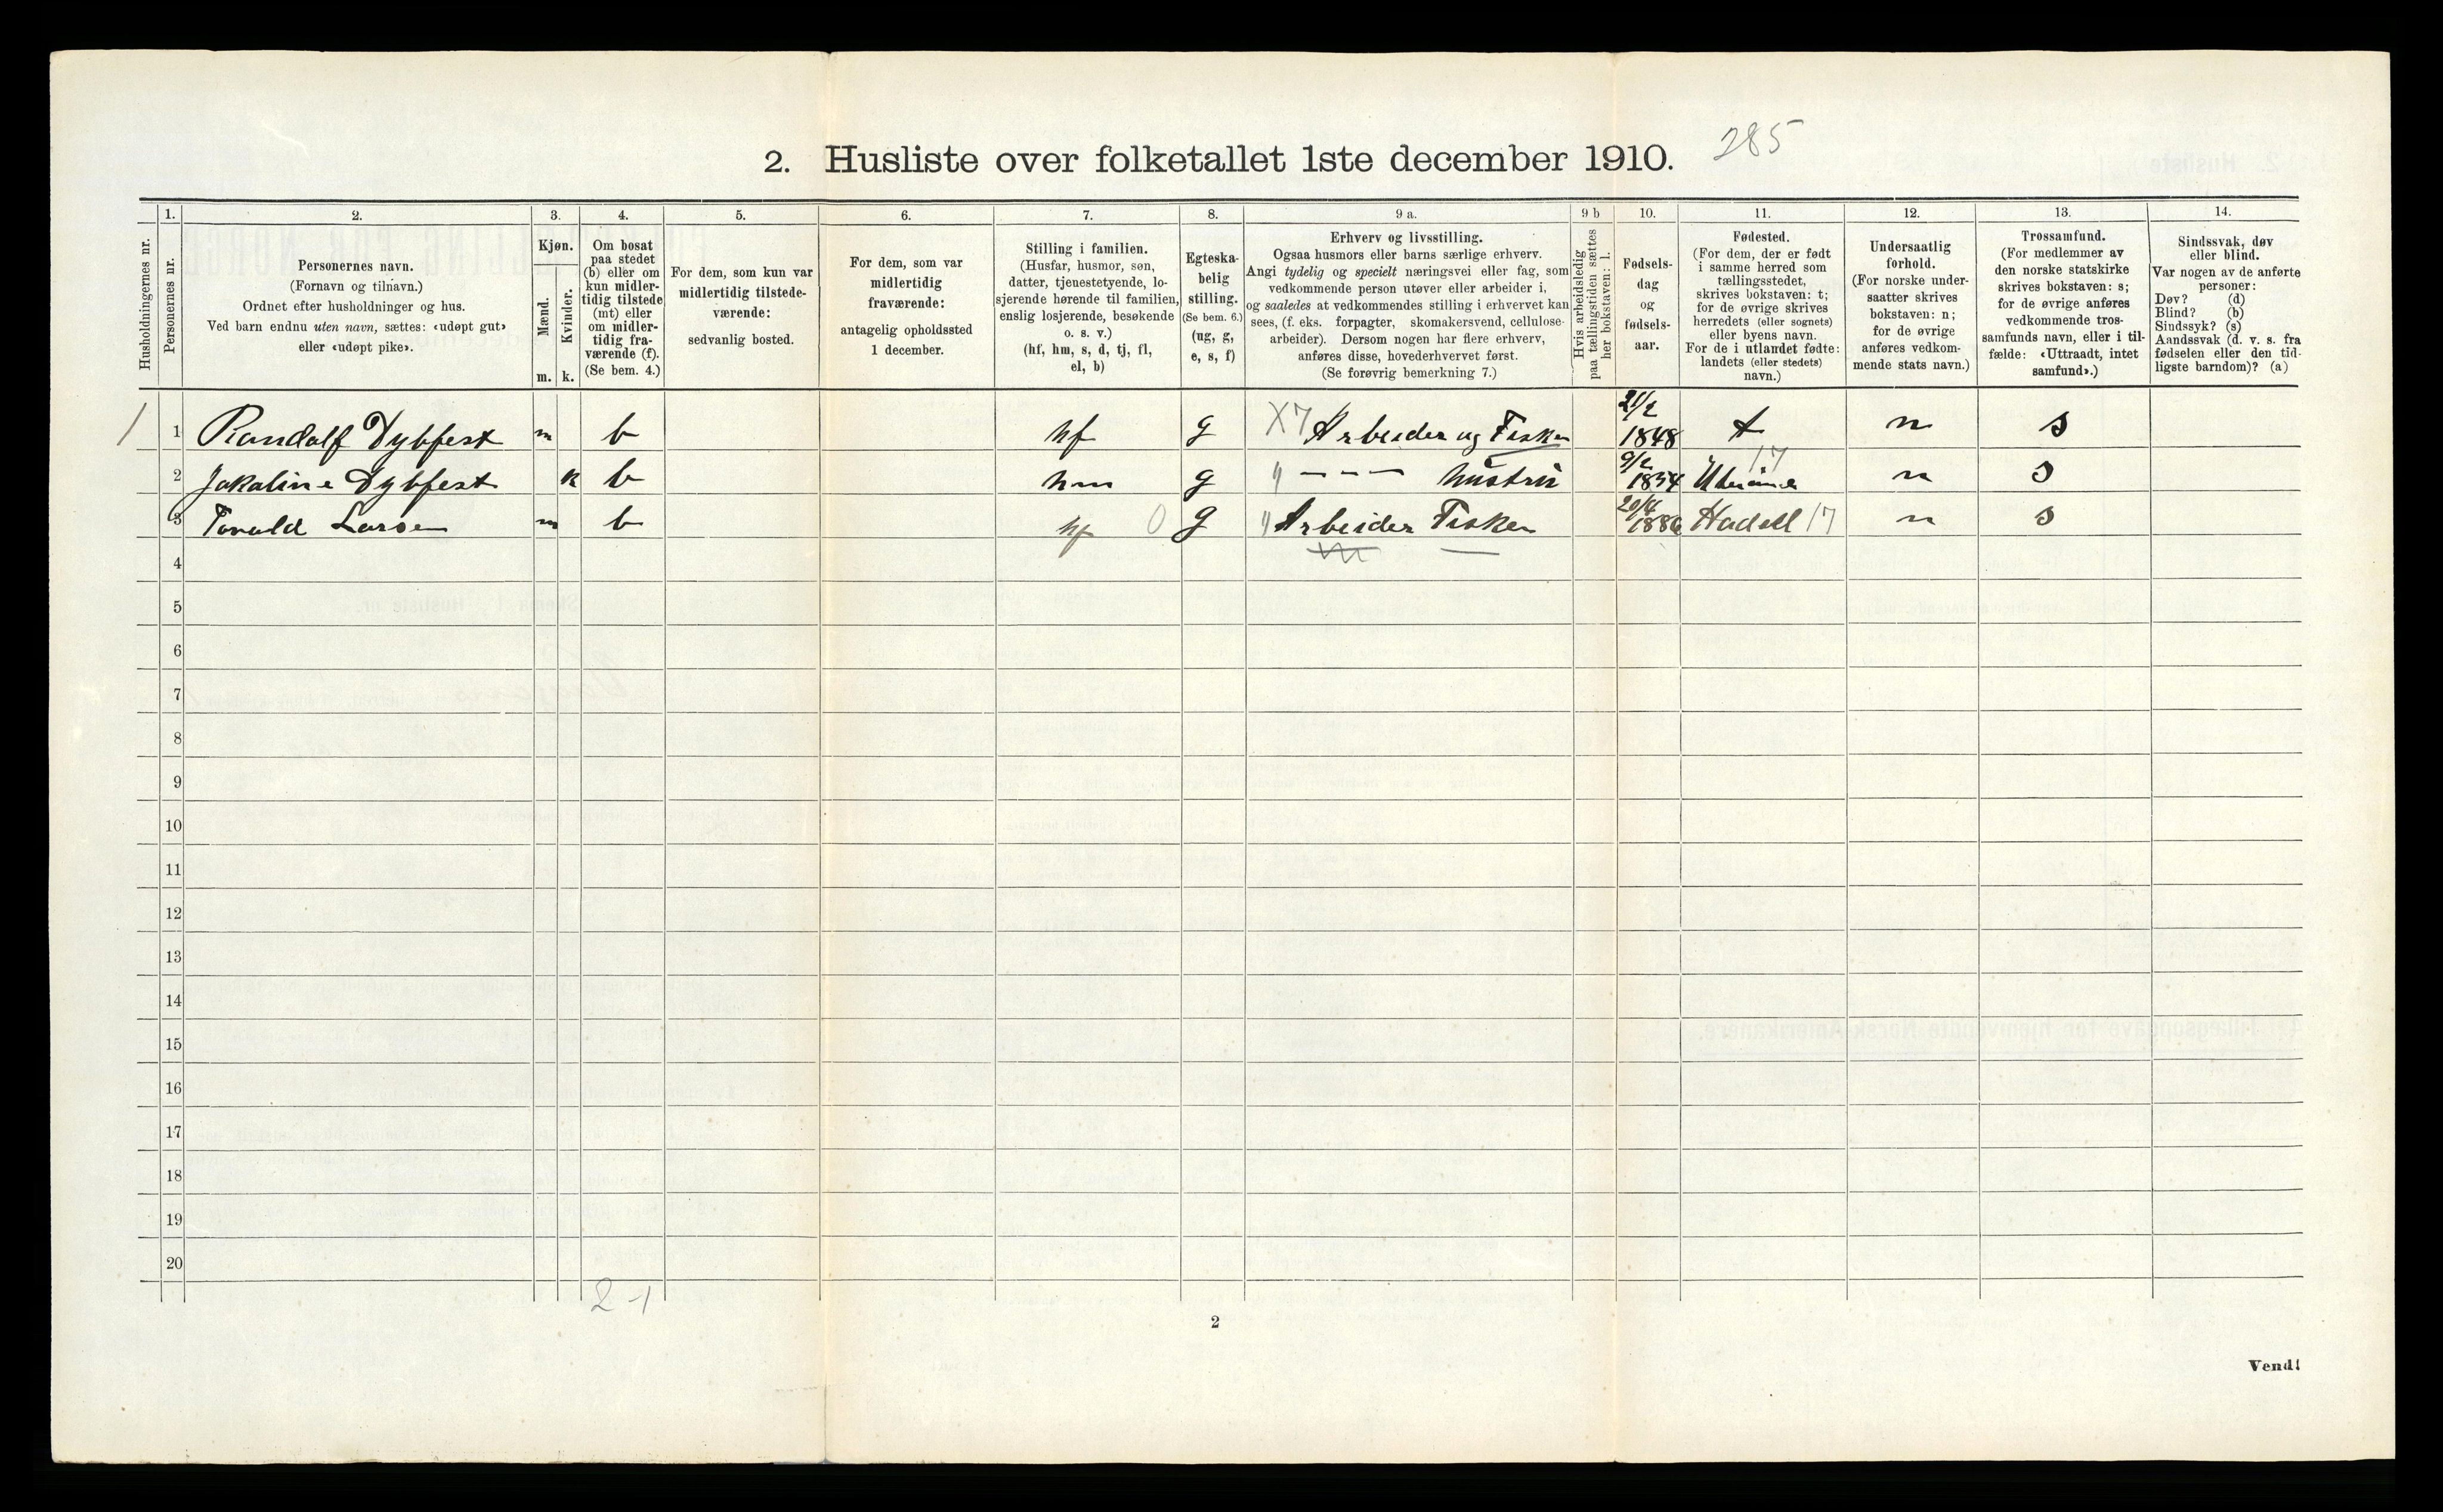 2. Husliste over folketallet 1ste december 1910. 285
Husholdningernes nr.
1. Personernes nr.
2.
Personernes navn.
(Fornavn og tilnavn.)
Ordnet efter husholdninger og hus.
Ved barn endnu uten navn, sættes: «udøpt gut»
eller «udøpt pike».
3.
Kjøn.
Mænd.
Kvinder.
m. k.
4.
Om bosat
paa stedet
(b) eller om
kun midler-
tidig tilstede
(mt) eller
om midler-
tidig fra-
værende (f).
(Se bem. 4.)
5.
For dem, som kun var
midlertidig tilstede-
værende:
sedvanlig bosted.
6.
For dem, som var
midlertidig
fraværende:
antagelig opholdssted
1 december.
7.
Stilling i familien.
(Husfar, husmor, søn,
datter, tjenestetyende, lo-
sjerende hørende til familien,
enslig losjerende, besøkende
o. s. v.)
(hf, hm, s, d, tj, fl,
el, b)
8.
Egteska-
belig
stilling.
(Se bem. 6.)
(ug, g,
e, s, f)
9 a.
Erhverv og livsstilling.
Ogsaa husmors eller barns særlige erhverv.
Angi tydelig og specielt næringsvei eller fag, som
vedkommende person utøver eller arbeider i,
og saaledes at vedkommendes stilling i erhvervet kan
sees, (f. eks. forpagter, skomakersvend, cellulose-
arbeider). Dersom nogen har flere erhverv,
anføres disse, hovederhvervet først.
(Se forøvrig bemerkning 7.)
9 b
Hvis arbeidsledig
paa tællingstiden sættes
her bokstaven: l.
10.
Fødsels-
dag
og
fødsels-
aar.
11.
Fødested.
(For dem, der er født
i samme herred som
tællingsstedet,
skrives bokstaven: t;
for de øvrige skrives
herredets (eller sognets)
eller byens navn.
For de i utlandet fødte:
landets (eller stedets)
navn.)
12.
Undersaatlig
forhold.
(For norske under-
saatter skrives
bokstaven: n;
for de øvrige
anføres vedkom-
mende stats navn.)
13.
Trossamfund.
(For medlemmer av
den norske statskirke
skrives bokstaven: s;
for de øvrige anføres
vedkommende tros-
samfunds navn, eller i til-
fælde: «Uttraadt, intet
samfund».)
14.
Sindssvak, døv
eller blind.
Var nogen av de anførte
personer:
Døv? (d)
Blind? (b)
Sindssyk? (s)
Aandssvak (d. v. s. fra
fødselen eller den tid-
ligste barndom)? (a)
1 1 Randolf Dybfest m b hf g X7 Arbeider og Fisker 21/2 1848 t n s
2 Jakobine Dybfest k b hm g " – – – hustru 9/2 1854 17 n s
3 Torvald Larsen m b hf 0 g " Arbeider Fisker 20/4 1886 Hadsel 17 n s
4
5
6
7
8
9
10
11
12
13
14
15
16
17
18
19
20
2-1
2
Vend!